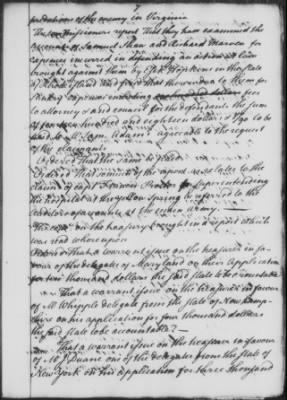 of the enemy in Virginia
The Commissioners report That they have examined the
accounts of Samuel Shaw and Richard Marven for
expences incurred in defending an action at law
brought against them by Hopkins in the State
of Rhode Island and find that there was due to them for
sundry expences including dollars fees
to attorneys and council for the defendants the sum
of hundred and eighteen dollars 7/90 to be
paid to Mr Sam. Adams agreeable to the request
of the claimants.
Ordered That the same be paid.
Ordered That so much of the report as relates to the
claim of capt Francis for superintending
the hospital at the yellow Spring be referred to the
The comee on the treasury brought in a report which
was read whereupon
Ordered That a warrant issue on the treasurer in fa-
vour of the delegates of Maryland on their application
for ten thousand dollars the said State to be accountable
That a warrant issue on the treasurer in favour
of M Whipple delegate from the state of New hamp-
shire on his application for four thousand dollars
the said state to be accountable.
That a warrant issue on the treasurer in favour
of M Duane one of the delegates from the state of
New York on his application for three thousand